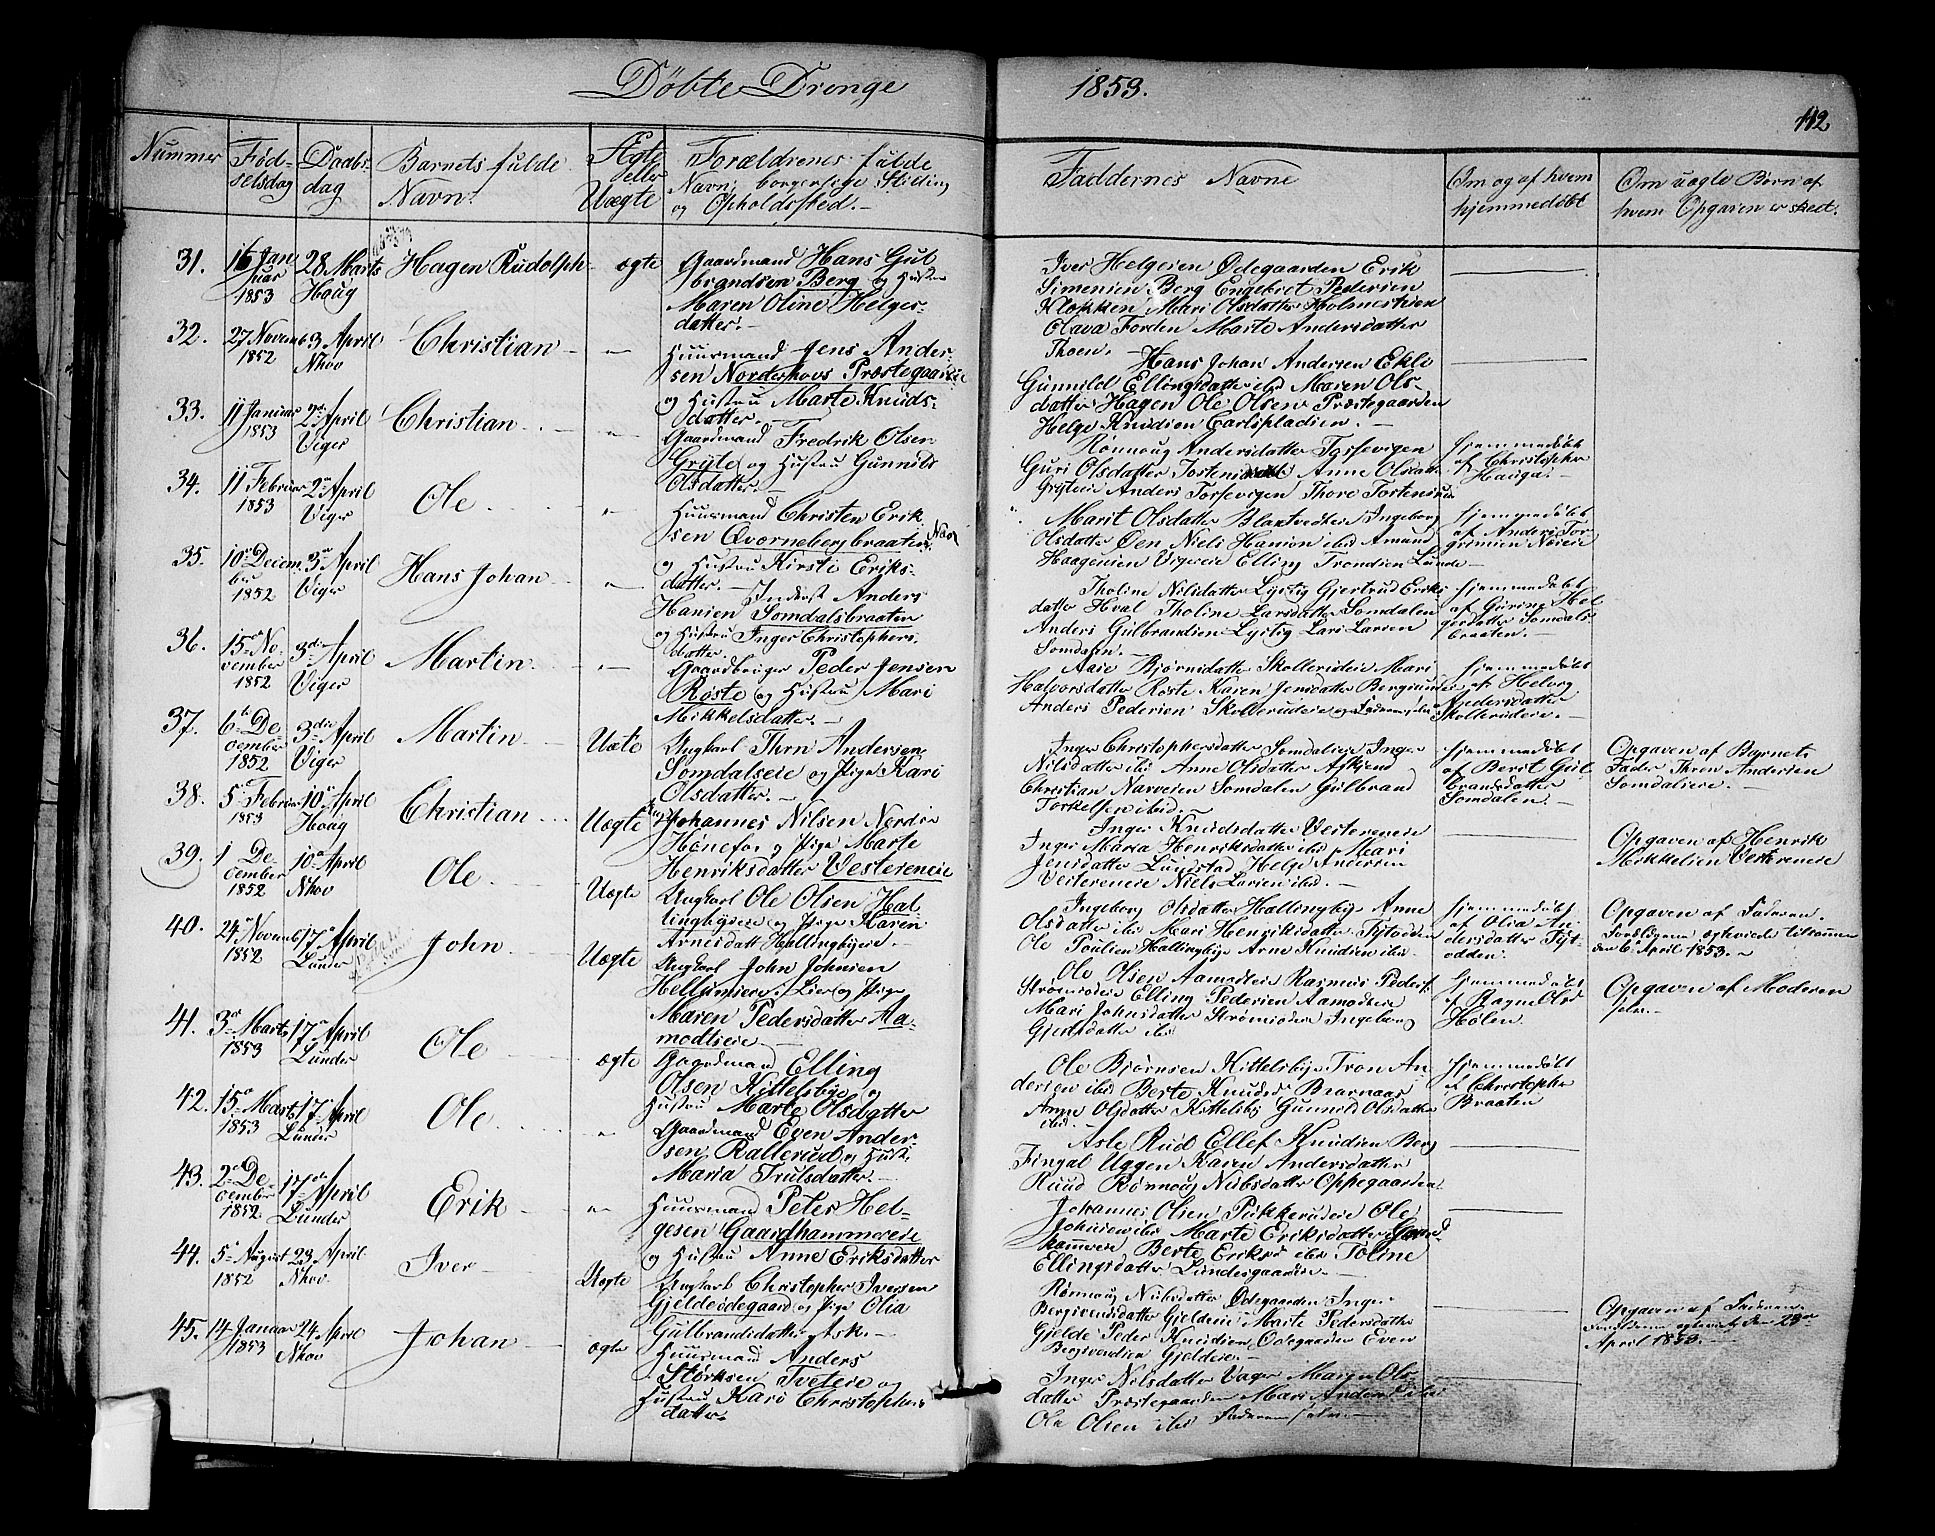 Döbte Drenge
1853.
112
Nummer
Fød-
selsdag
Daabs-
dag
Barnets fulde
Navn.
Ægte
eller
Uægte
Forældrenes fulde
Navn, borgerlige Stilling
og Opholdssted.
Faddernes Navne
Om og af hvem
hjemmedøbt
Om uægte Børn af
hvem Opgaven er skeet.
31.
16 Jan
uar
1853
28 Marts
Haug
Hagen Rudolph
ægte
Gaardmand Hans Gul
brandsen Berg og Hustru
Maren Oline Helges-
datter.
Iver Helgesen Ødegaarden Erik
Simensen Berg Engebret Pedersen
Klokken Mari Olsdatter Holmestien
Olava Forden Marte Andersdatter
Thoen.
32.
27 Novemb
1852
3 April
Nhov
Christian
Huusmand Jens Ander-
sen Norderhovs Præstegaardseie
og Hustru Marte Knuds-
datter.
Hans Johan Andersen Ekli
Gunnild Ellingsdatter ibid Maren Ols-
datter Hagen Ole Olsen Præstegaarden
Helge Knudsen Carlspladsen.
33.
11 Januar
1853
2 April
Viger
Christian
Gaardmand Fredrik Olsen
Gryte og Hustru Gunnild
Olsdatter.
Rønnoug Andersdatter
Guri Olsdatter Anne Olsdatt
Anders Thore
hjemmedøbt
af Christopher
Hauga.
34.
11 Februar
1853
2 April
Viger
Ole
Huusmand Christen Erik
sen Qvernebergbraaten
og Hustru Kirsti Eriks-
datter.
Marit Olsdatter Ingeborg
Olsdatter Øen Niels Hansen ibid Amund
Haagensen Vigerseie Elling Trondsen Lunde
hjemmedøbt
af Anders Tor-
grimsen
35.
10 Decem
ber
1852
3 April
Viger
Hans Johan
Inderst Anders
Hansen Somdalsbraaten
og Hustru Inger Christophers
datter.
Tholine Nilsdatter Lystig Gjertrud Eriks
datter Hval Tholine Larsdatter Somdalen
Anders Gulbrandsen Lystig Lars Larsen
Somdalen.
hjemmedøbt
af Guring Hel
gesdatter Somdals
braaten.
36.
15 No-
vember
1852
3die April
Viger
Martin
Gaardbruger Peder Jensen
Røste og Hustru Mari
Mikkelsdatter.
Aase Bjørnsdatter Skollerudeie Mari
Halvorsdatter Røste Karen Jensdatter
Anders Pedersen Skollerudeie og Faderen selv
hjemmedøbt
af Helvig
Pedersdatter
Skollerudeie.
37.
6 De-
cember
1852
3die April
Viger
Martin
Uæte
Ungkarl Thrn Andersen
Somdalseie og Pige Kari
Olsdatter.
Inger Christophersdatter Somdalseie Inger
Nilsdatter ibid Anne Olsdatter
Christian Narvesen Somdalen Gulbrand
Torkelsen ibid.
hjemmedøbt
af Berit Gul
brandsdatter
Somdalen.
Opgaven af Barnets
Fader Thron Andersen
Somdalseie.
38.
5 Februar
1853
10 April
Haug
Christian
Uægte
Johannes Nilsen Nordre
Hønefos og Pige Marte
Henriksdatter Vesterneie
Inger Knudsdatter Vesterneie
Inger Maria Henriksdatter ibid Mari
Jensdatter Lundstad Helge Andersen
Vesterneie Niels Larsen ibid.
Opgaven af Henrik
Mikkelsen Vesterneie
39.
1 De-
cember
1852
10 April
Nhov
Ole
Uægte
Ungkarl Ole Olsen Hal
lingbyeie og Pige Karen
Arnesdatt Hallingbyeie.
Ingeborg Olsdatter Hallingby Anne
Olsdatter ibid Mari Henriksdatter
Ole Paulsen Hallingby Arne Knudsen ibid
hjemmedøbt
af Olia An
dersdatter
Opgaven af Faderen.
den 6 April 1853.
40.
24 Novemb
1852
17 April
Lunder
John
Uægte
Ungkarl John Johnsen
Hellumseie, Lier og Pige
Maren Pedersdatter Aa-
modtseie
Ole Olsen Aamodteie Rasmus Peders
Strømsoeie Elling Pedersen Aamodseie
Mari Johnsdatter Ingeborg
Gjertsdatter ibid
hjemmedøbt
af Ragne Olsd
Hølen.
Opgaven af Moderen
selv.
41.
3 Marts
1853
17 April
Lunder
Ole
ægte
Gaardmand Elling
Olsen Kittelsbye og
Hustru Marte Olsdatter
Ole Bjørnsen Kittelsby Tron An
dersen ibid Berte Knudsd Braanaas
Anne Olsdatter Kittelsby Gunnild Olsdatter
ibid.
hjemmedøbt
af Christopher
Braaten
42.
15 Marts
1853
17 April
Lunder
Ole
Gaardmand Even Ander-
sen, Rallerud og Hust.
Maria Trulsdatter.
Asle Rud Ellef Knudsen Berg
Fingal Uggen Karen Andersdatter
Ruud Rønnoug Nubsdatter Oppegaarden
43.
2 De-
cember
1852
17 April
Lunder
Erik
Huusmand Peter Hel-
gesen Gaardhammereie
og Hustru Anne Eriksdatter
Johannes Olsen Pukkerudeie Ole
Johnsen ibid Marte Eriksdatter Gaard
hammereie Berte Eriksd ibid Toline
Ellingsdatter Lundesgaarden.
44.
5 August
1852
23 April
Nhov.
Iver
Uægte
Ungkarl Christopher Iversen
Gjeldeødegaard og Pige Olia
Gulbrandsdatter Ask.
Rønnoug Nubsdatter Ødegaarden Inger
Bergsvendsdatter Gjeldeie Marte Pedersdatter
Gjelde Peder Knudsen Ødegaarden Even
Bergsvendsen Gjeldeie.
Opgaven af Faderen.
April 1853.
45.
14 Januar
1853
24 April
Nhov
Johan
ægte
Huusmand Anders
Størksen Tveteie og
Hustru Kari Christophers
datter.
Inger Nilsdatter Vager Maren Ols-
datter Præstegaarden Mari Andersd ibid
Ole Olsen ibid Faderen selv.